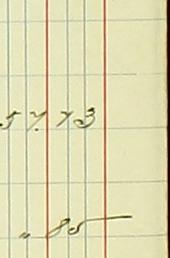 57.73
" 85